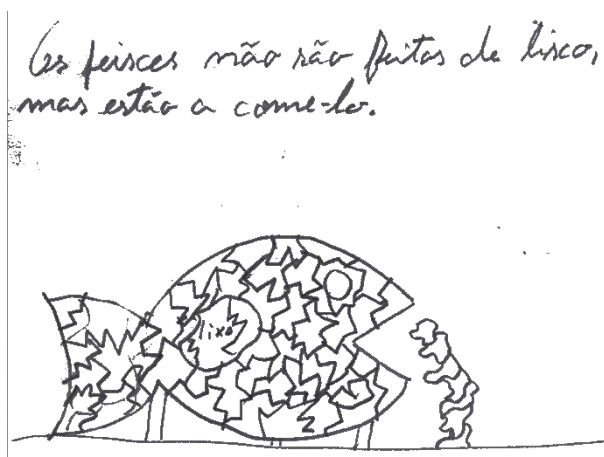 Os peisces não são feitos de lisco,
mas estão a come-lo.
lixo